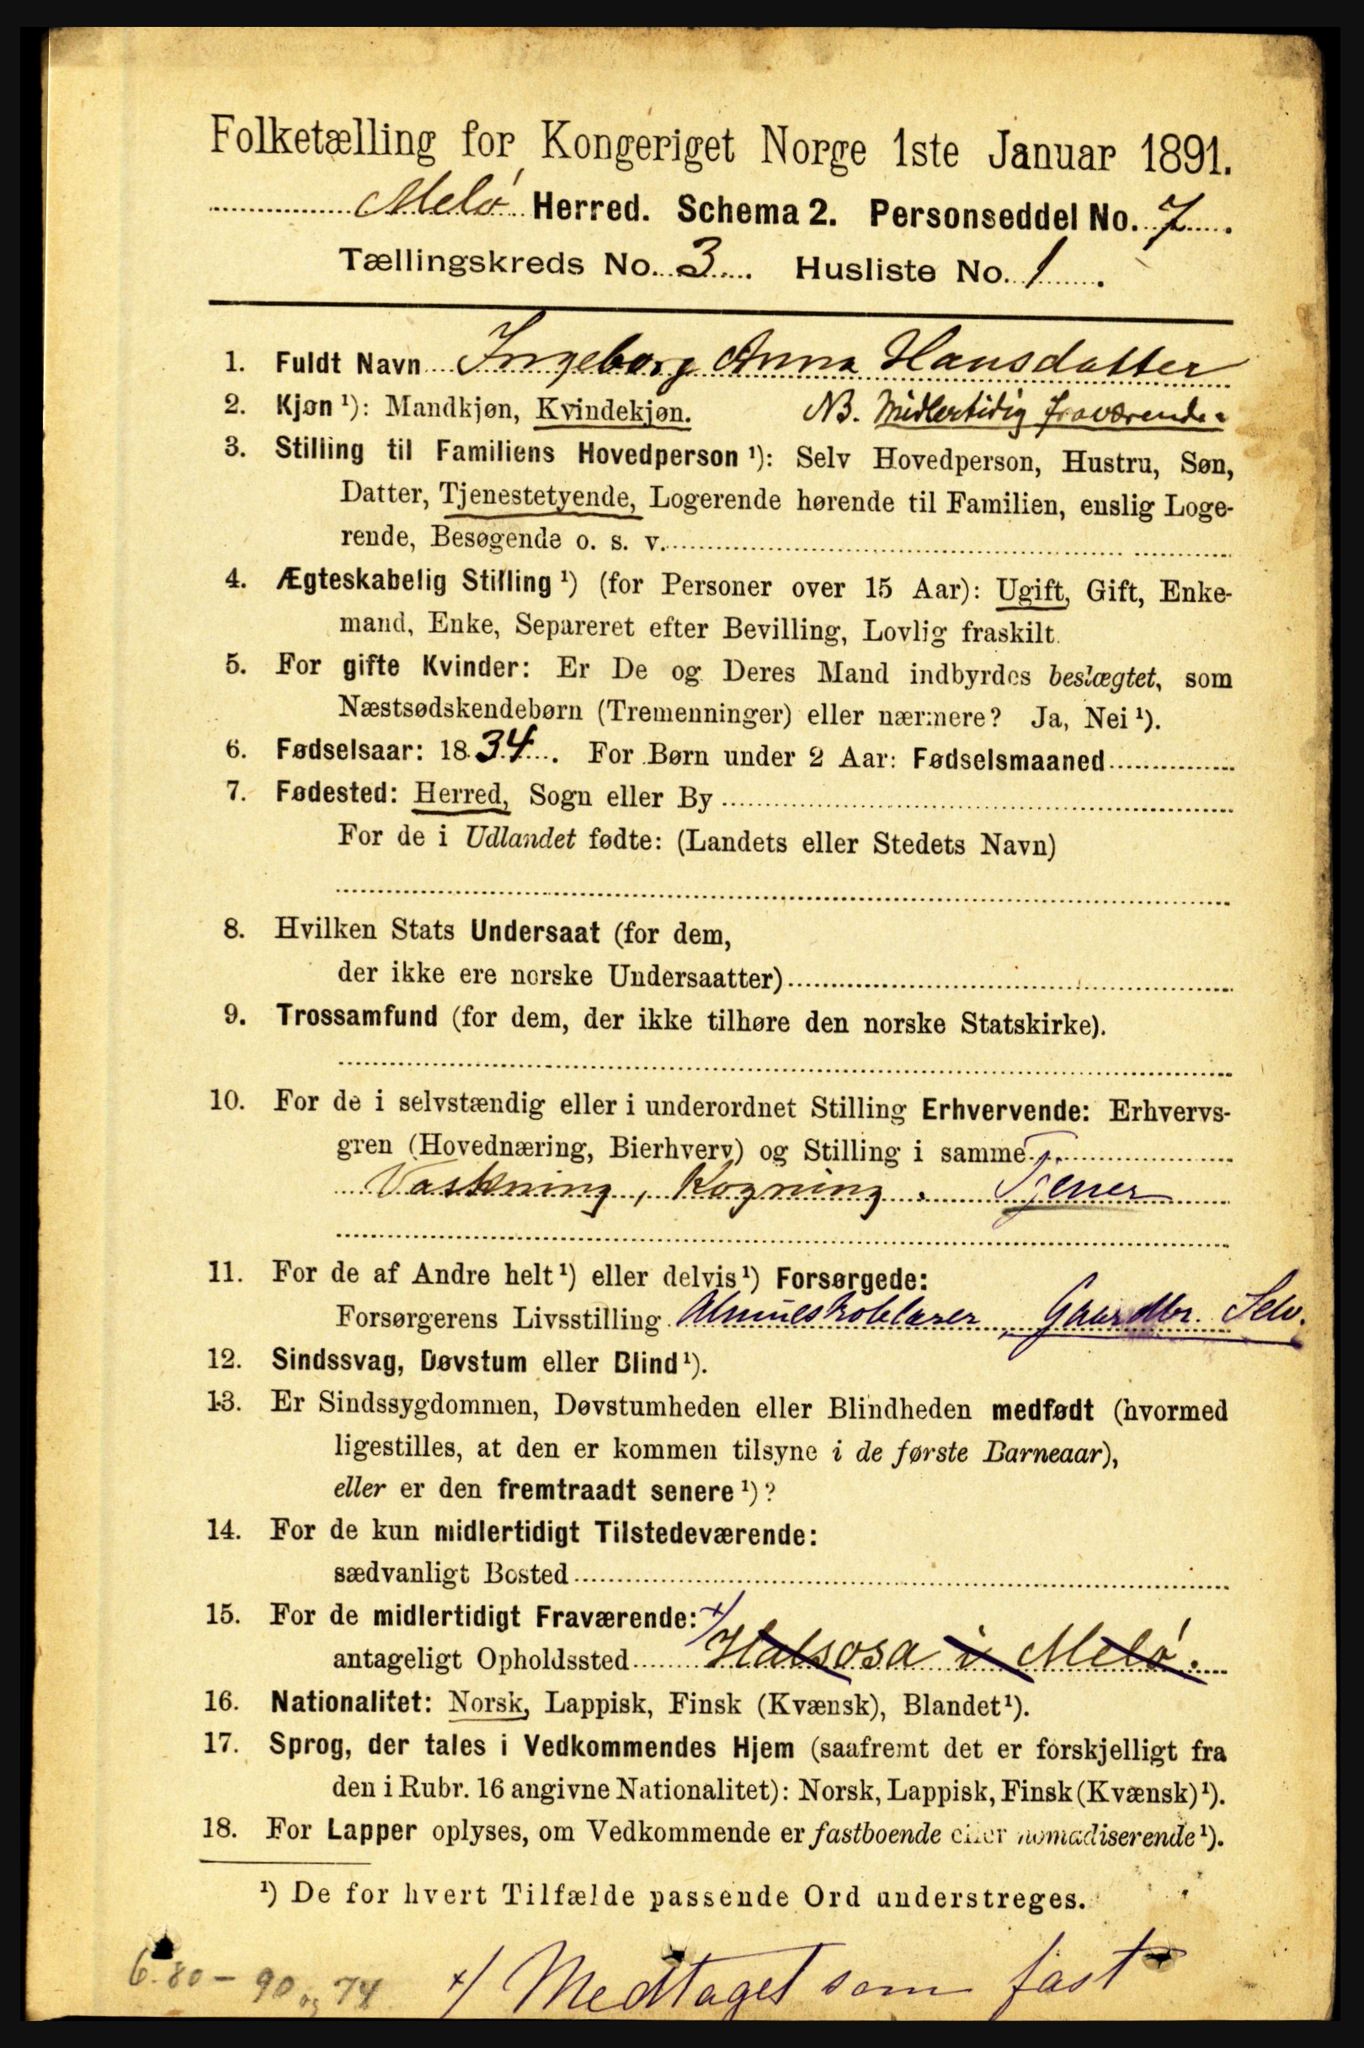 Folketælling for Kongeriget Norge 1ste Januar 1891.
Melø Herred. Schema 2. Personseddel No. 7.
Tællingskreds No. 3. Husliste No. 1.
1. Fuldt Navn Ingeborg Anna Hansdatter
2. Kjøn ¹): Mandkjøn, Kvindekjøn. NB. Midlertidig fraværende.
3. Stilling til Familiens Hovedperson ¹): Selv Hovedperson, Hustru, Søn,
Datter, Tjenestetyende, Logerende hørende til Familien, enslig Loge-
rende, Besøgende o. s. v.
4. Ægteskabelig Stilling ¹) (for Personer over 15 Aar): Ugift, Gift, Enke-
mand, Enke, Separeret efter Bevilling, Lovlig fraskilt.
5. For gifte Kvinder: Er De og Deres Mand indbyrdes beslægtet, som
Næstsødskendebørn (Tremenninger) eller nærmere? Ja, Nei ¹).
6. Fødselsaar: 1834. For Børn under 2 Aar: Fødselsmaaned
7. Fødested: Herred, Sogn eller By
For de i Udlandet fødte: (Landets eller Stedets Navn)
8. Hvilken Stats Undersaat (for dem,
der ikke ere norske Undersaatter)
9. Trossamfund (for dem, der ikke tilhøre den norske Statskirke).
10. For de i selvstændig eller i underordnet Stilling Erhvervende: Erhvervs-
gren (Hovednæring, Bierhverv) og Stilling i samme
Vaskning, Kogning. Tjener
11. For de af Andre helt ¹) eller delvis ¹) Forsørgede:
Forsørgerens Livsstilling Almueskolelærer, Gaardbr. Selv.
12. Sindssvag, Døvstum eller Blind ¹).
13. Er Sindssygdommen, Døvstumheden eller Blindheden medfødt (hvormed
ligestilles, at den er kommen tilsyne i de første Barneaar),
eller er den fremtraadt senere ¹)?
14. For de kun midlertidigt Tilstedeværende:
sædvanligt Bosted
15. For de midlertidigt Fraværende: +/
antageligt Opholdssted Halsosa i Melø.
16. Nationalitet: Norsk, Lappisk, Finsk (Kvænsk), Blandet ¹).
17. Sprog, der tales i Vedkommendes Hjem (saafremt det er forskjelligt fra
den i Rubr. 16 angivne Nationalitet): Norsk, Lappisk, Finsk (Kvænsk) ¹).
18. For Lapper oplyses, om Vedkommende er fastboende eller nomadiserende ¹).
¹) De for hvert Tilfælde passende Ord understreges.
6.80 - 90 og 74 +/ Medtaget som fast